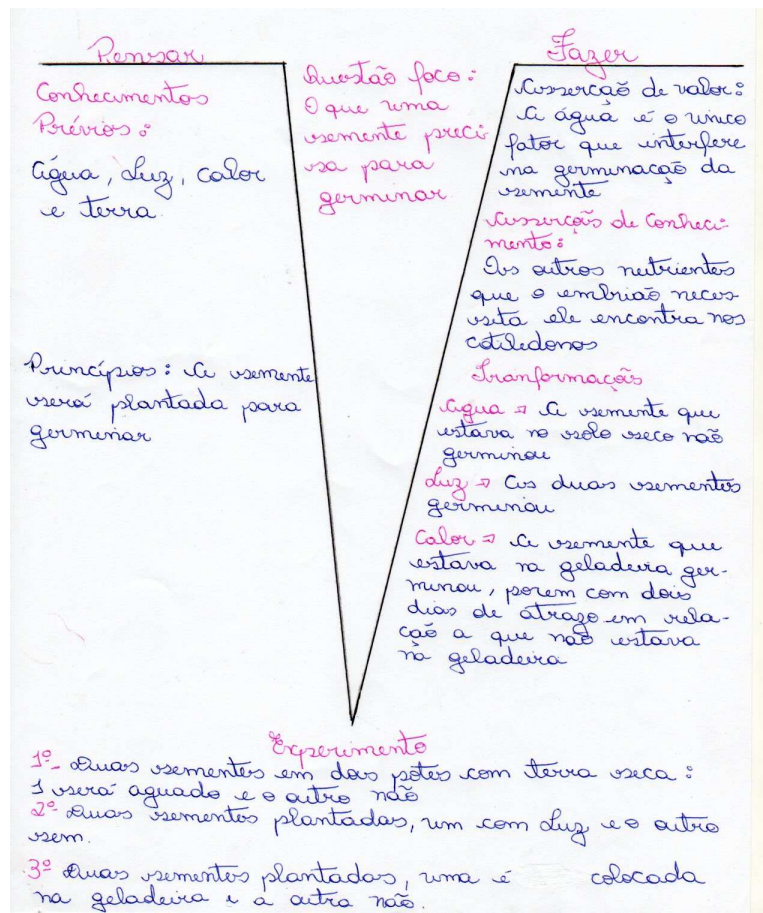 Pensar
Conhecimentos
Prévios:
água, Luz, calor
e terra.
Princípios: A semente
será plantada para
germinar
Questão foco:
O que uma
semente preci
sa para
germinar.
Fazer
Asserção de valor:
A água é o único
fator que interfere
na germinação da
semente
Asserções de Conheci-
mento:
Os outros nutrientes
que o embrião neces-
sita ele encontra nos
cotiledonos
Tranformações
Água → A semente que
estava no solo seco não
germinou
Luz → As duas sementes
germinou
Calor → A semente que
estava na geladeira ger-
minou, porem com dois
dias de atrazo em rela-
ção a que não estava
na geladeira
Experimento
1º- Duas sementes em dois potes com terra seca:
1 será aguado e o outro não
2º- Duas sementes plantadas, um com Luz e o outro
sem.
3º Duas sementes plantadas, uma é colocada
na geladeira e a outra não.